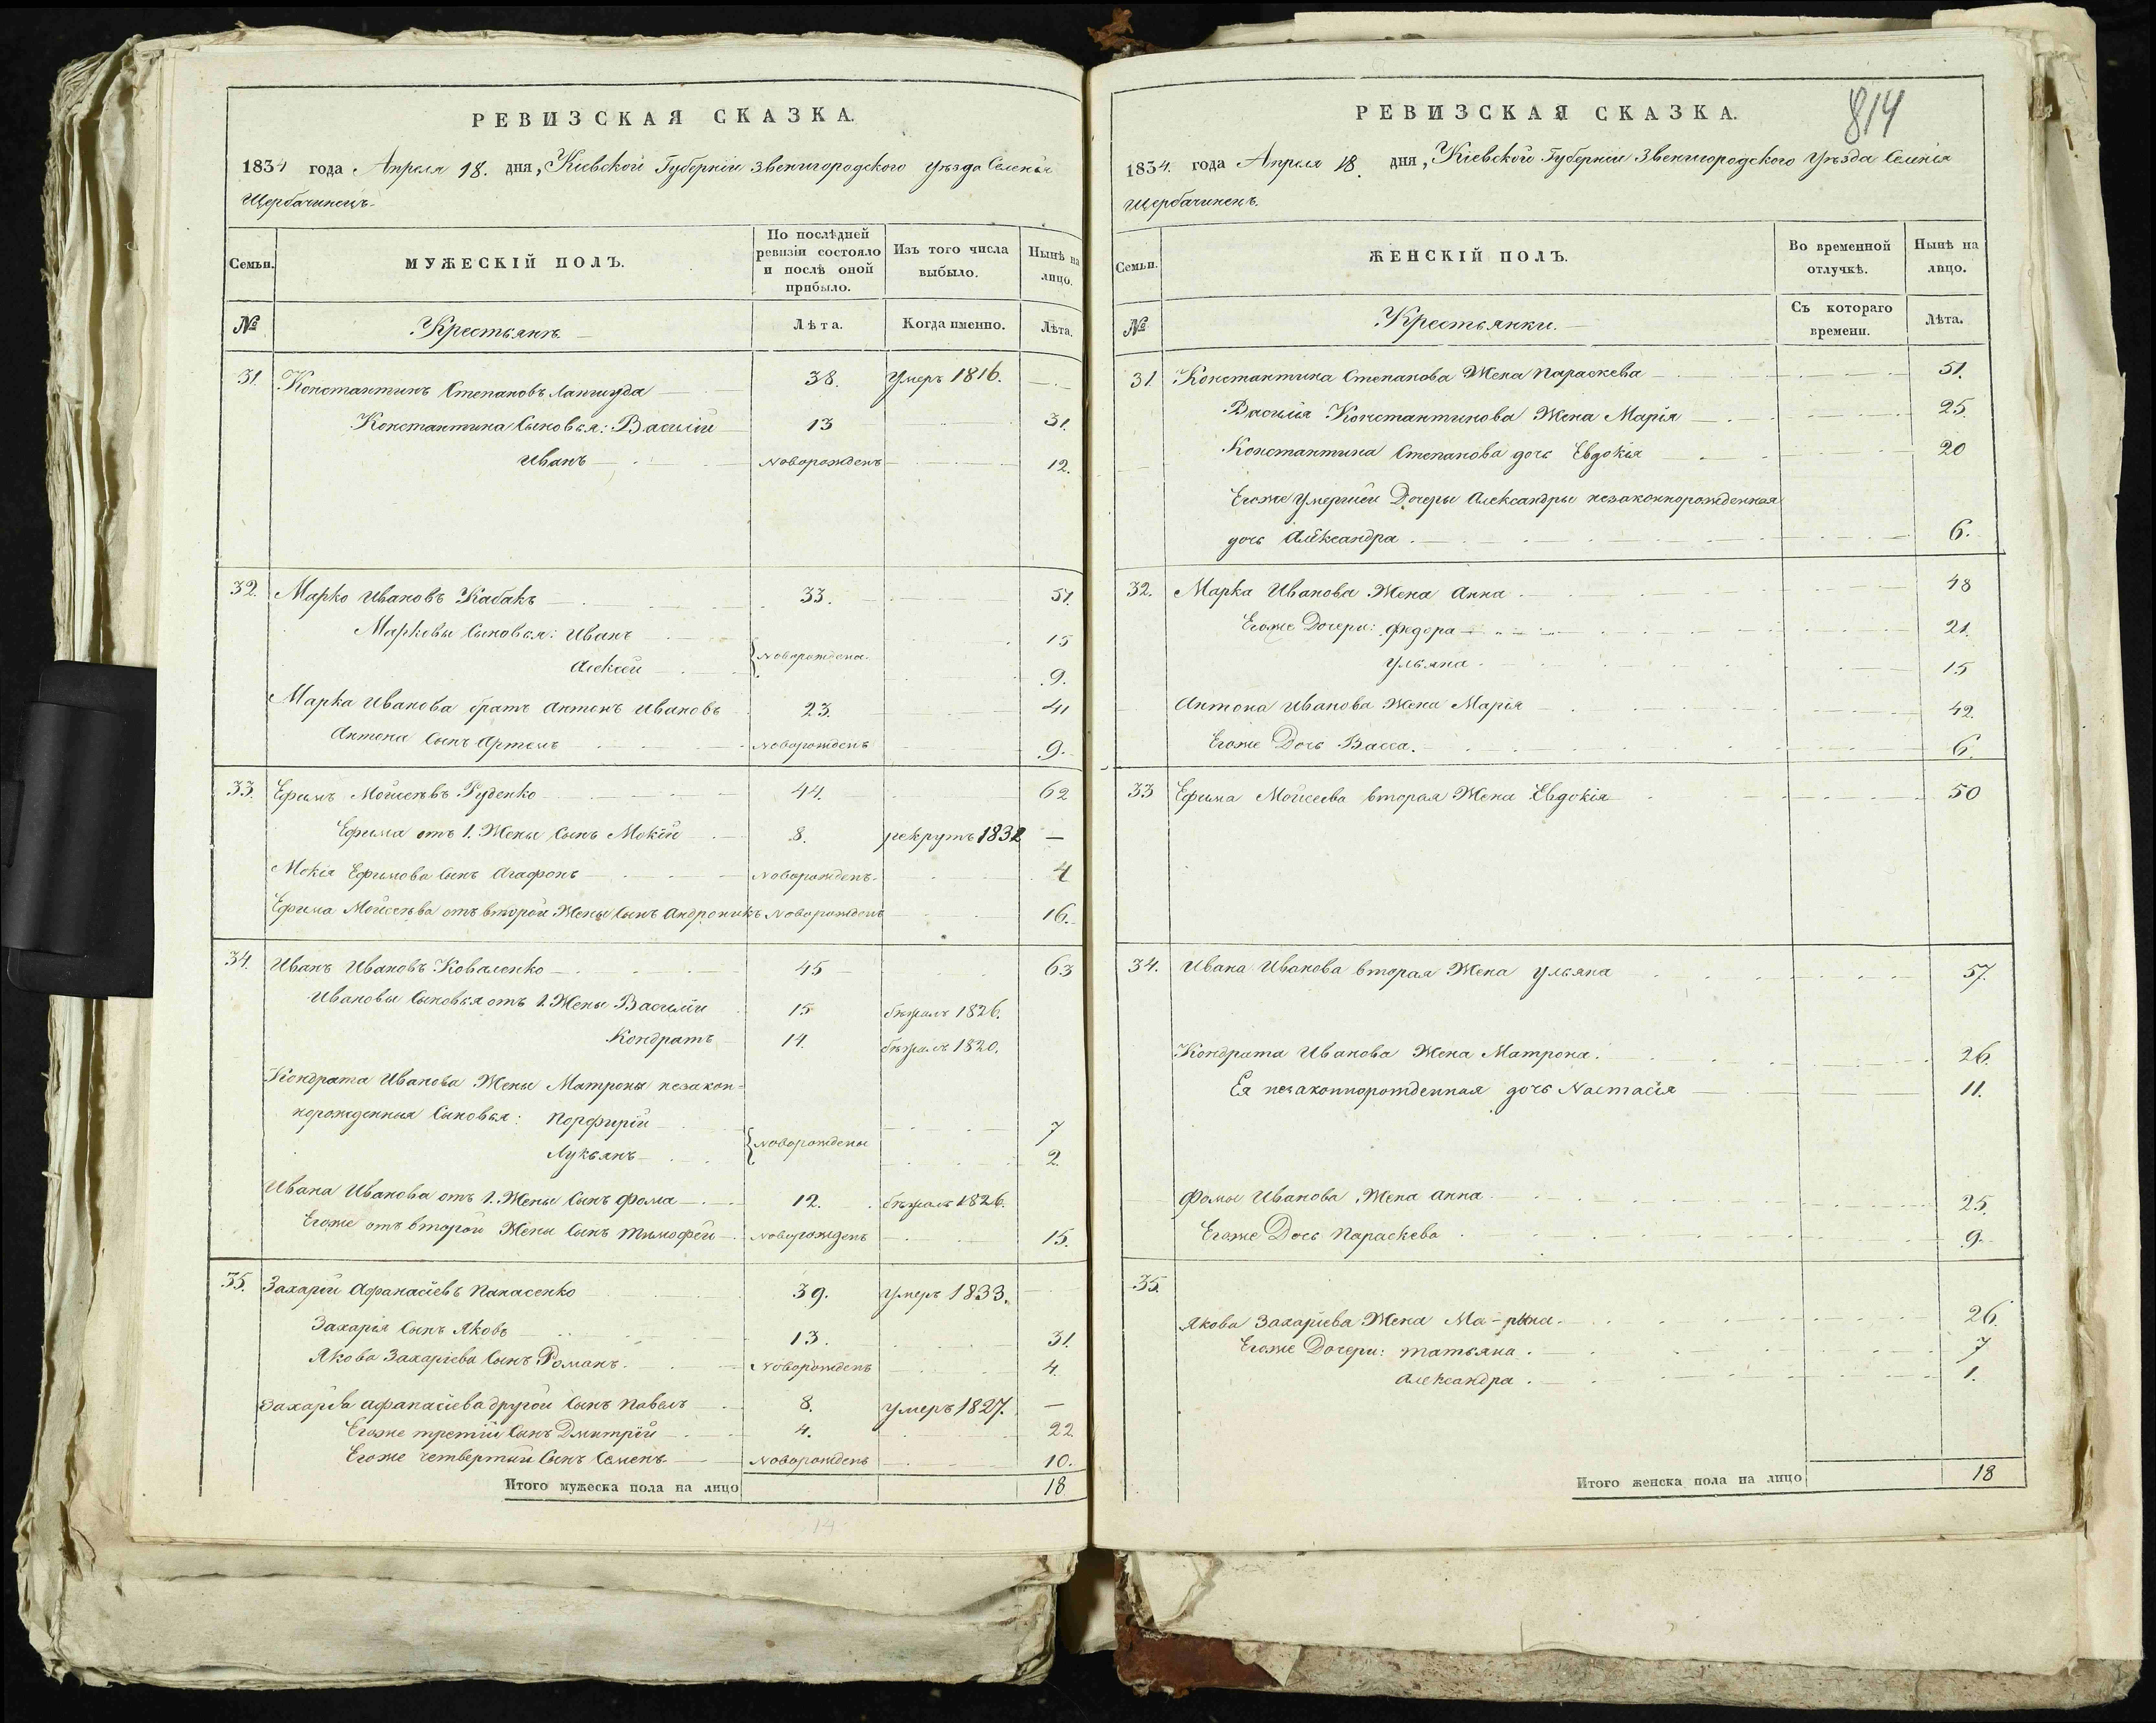 РЕВИЗСКАЯ СКАЗКА.
1834 года Апреля 18. дня, Кіевской Губерніи Звенигородского Уѣзда Селенія
Щербачинецъ.
Семьи.
МУЖЕСКІЙ ПОЛЪ.
По послѣдней
ревизіи состояло
и послѣ оной
прибыло.
Изъ того числа
выбыло.
Нынѣ на
лицо.
№
Крестьянъ.
Лѣта.
Когда именно.
Лѣта.
31. Константинъ Степановъ 38. Умеръ 1816.
Константина Сыновья: Василій 13 31.
Иванъ Новорожденъ 12.
32. Марко Ивановъ Кабакъ 33. 51.
Марковы Сыновья: Иванъ 15
Новорождены.
Алексей 9.
Марка Иванова братъ Антонъ Ивановъ 23. 41
Антона Сынъ Артемъ Новорожденъ 9.
33. Ефимъ Мойсеѣвъ Руденко 44. 62
Ефима отъ 1. Жены Сынъ Мокій 8. рекрутъ 1832 —
Мокія Ефимова Сынъ Агафонъ Новорожденъ. 4
Ефима Мойсеѣва отъ второй Жены Сынъ Андроникъ Новорожденъ 16.
34. Иванъ Ивановъ Коваленко 45 63
Ивановы Сыновья отъ 1. Жены Василій 15 бѣжалъ 1826.
Кондратъ 14. бѣжалъ 1820.
Кондрата Иванова Жены Матроны незакон-
норожденныя Сыновья: Порфирій 7
Новорождены
Лукьянъ 2.
Ивана Иванова отъ 1. Жены Сынъ Фома 12. бѣжалъ 1826.
Егоже отъ второй Жены Сынъ Тимофей Новорожденъ 15.
35. Захарій Афанасіевъ Панасенко 39. Умеръ 1833.
Захарія Сынъ Яковъ 13. 31.
Якова Захаріева Сынъ Романъ. Новорожденъ 4.
Захарія Афанасіева другой Сынъ Павелъ 8. Умеръ 1827. —
Егоже третій Сынъ Дмитрій 4. 22
Егоже четвертый Сынъ Семенъ Новорожденъ 10.
Итого мужеска пола на лицо 18
14
814
РЕВИЗСКАЯ СКАЗКА.
1834. года Апреля 18. дня, Кіевской Губерніи Звенигородского Уѣзда Селенія
Щербачинецъ.
Семьи.
ЖЕНСКІЙ ПОЛЪ.
Во временной
отлучкѣ.
Нынѣ на
лицо.
№
Крестьянки.
Съ котораго
времени.
Лѣта.
31. Константина Степанова Жена Параскева 51.
Василія Константинова Жена Марія 25.
Константина Степанова дочь Евдокія 20
Егоже умершей Дочеры Александры незаконнорожденная
дочь Александра 6.
32. Марка Иванова Жена Анна 48
Егоже Дочери: Федора 21.
Ульяна 15
Антона Иванова Жена Марія 42.
Егоже Дочь Васса. 6.
33 Ефима Мойсеева вторая Жена Евдокія 50
34. Ивана Иванова вторая Жена Ульяна 57.
Кондрата Иванова Жена Матрона. 26.
Ея незаконнорожденная дочь Настасія 11.
Фомы Иванова Жена Анна 25.
Егоже Дочь Параскева 9.
35.
Якова Захаріева Жена Ма-рына. 26.
Егоже Дочери: Татьяна. 7
Александра. 1.
Итого женска пола на лицо 18